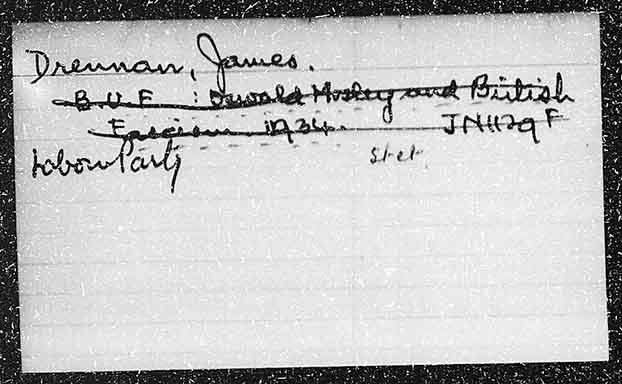 Drennan, James.
B.U.F : Oswald Mosley and British
Fascism 1934. JN1129 F
Labour Party stet.